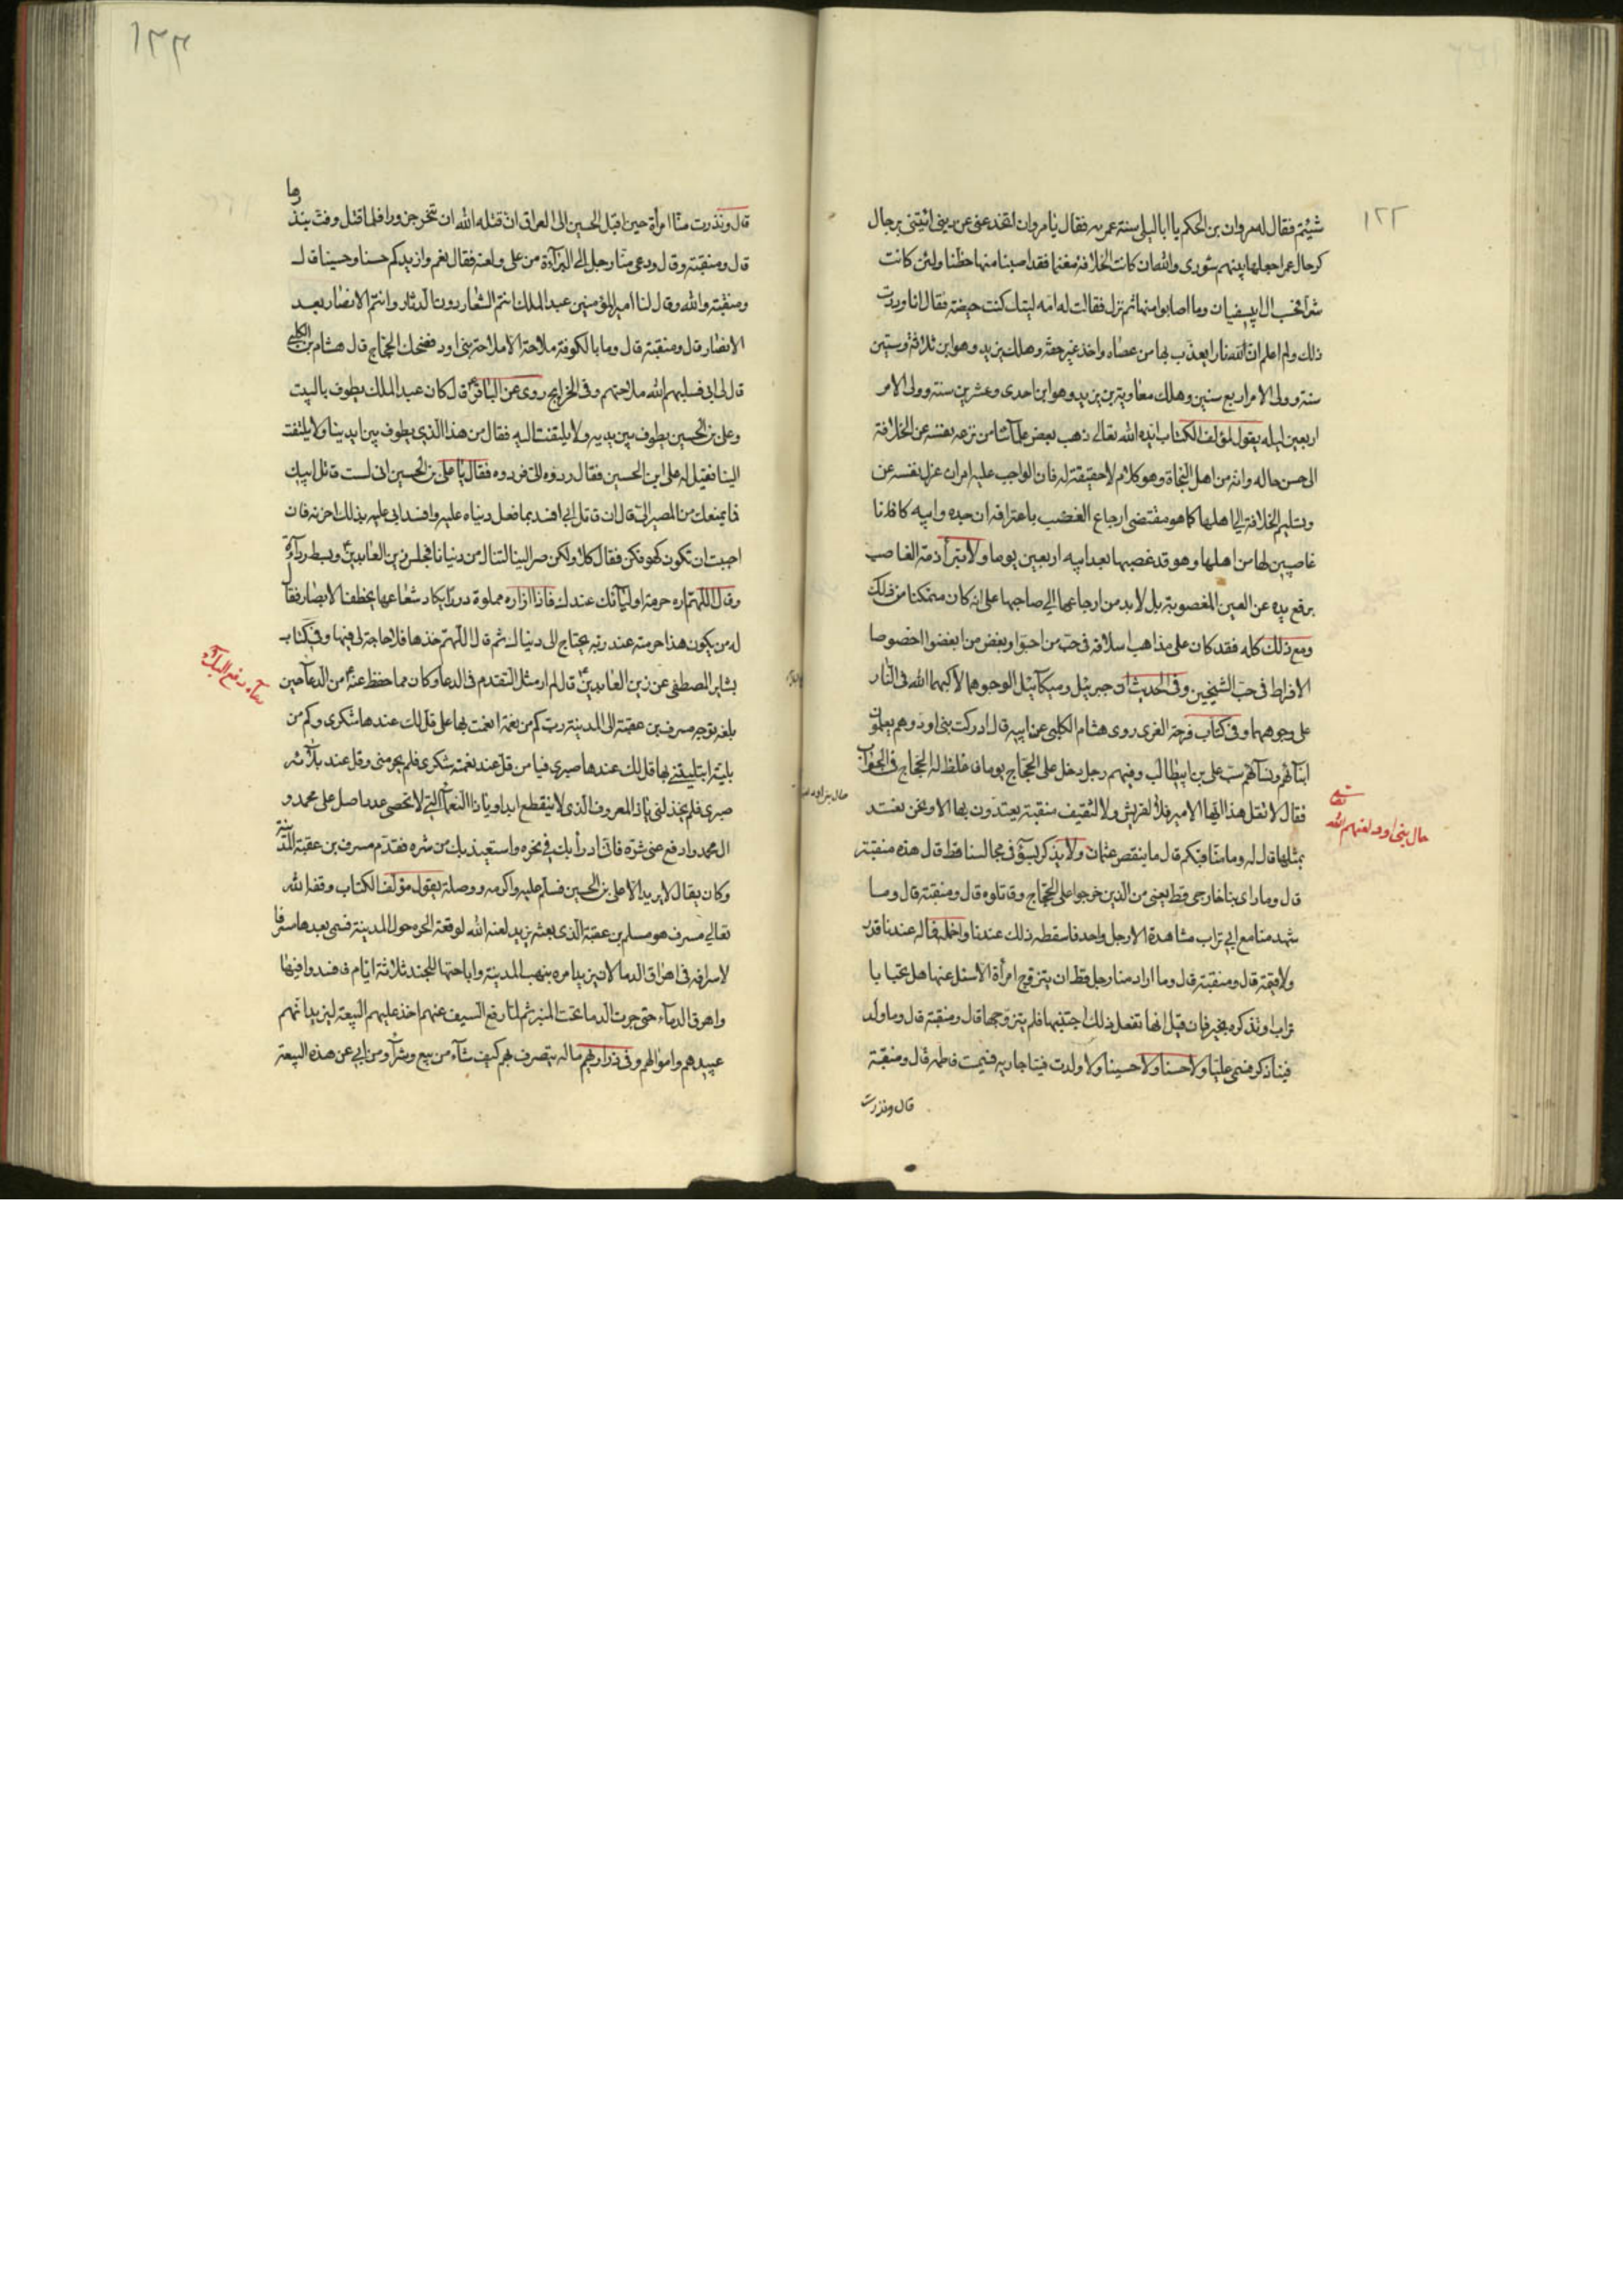 ١٢٢
شئتم فقال له مروان بن الحكم يا ابا ليلى سنة عمريه فقال يا مروان اتخدعني عن ديني ائتني برجال
كرجال عمر اجعلها بينهم شورى والله ان كانت الخلافة مغنما فقد اصبنا منها حظنا ولئن كانت
شرا فحسب ال ابي سفيان وما اصابوا منها ثم نزل فقالت له امه ليتك كنت حيضة فقال انا وددت
ذلك ولم اعلم ان لله نارا يعذب بها من عصاه واخذ غير حقه وهلك يزيد وهو ابن ثلاثة وستين
سنة وولى الامر اربع سنين وهلك معاوية بن يزيد وهو ابن احدى وعشرين سنة وولى الامر
اربعين ليله يقول مؤلف الكتاب ايده الله تعالى ذهب بعض علمائنا من نزعه نفسه عن الخلافة
الى حسن حاله وانه من اهل النجاة وهو كلام لا حقيقة له فان الواجب عليه امران عزل نفسه عن
وتسليم الخلافة الى اهلها كما هو مقتضى ارجاع الغصب باعترافه ان جده وابيه كافلانا
غاصبين لها من اهلها وهو قد غصبها بعد ابيه اربعين يوما ولا تبرأ ذمة الغاصب
برفع يده عن العين المغصوبة بل لا بد من ارجاعها الى صاحبها على انه كان متمكنا من ذلك
ومع ذلك كله فقد كان على مذاهب اسلافه في حب من احبوا وبغض من ابغضوا خصوصا
الافراط في حب الشيخين وفي الحديث ان جبرئيل وميكائيل الوجوهما لأكبهما الله في النار
على وجوههما وفي كتاب فرحة الغري روى هشام الكلبي عن ابيه قال ادركت بني اود وهم يعلمون
ابنائهم ونسائهم سب علي بن ابيطالب وفيهم رجل دخل على الحجاج يوما فاغلظ له الحجاج في الجواب
فقال لا تقل هذا ايها الامير فلا لقريش ولا لثقيف منقبة يعتدون بها الا ونحن نعتد
بمثلها قال له وما مناقبكم قال ما ينقص عثمان ولا يذكر بسوء في مجالسنا قط قال هذه منقبة
قال وما راى منا خارجى قط يعني من الذين خرجوا على الحجاج وقاتلوه قال ومنقبة قال وما
شهد منا مع ابي تراب مشاهده الا رجل واحد فاسقطه ذلك عندنا واخمله فما له عندنا قدر
ولا قيمة قال ومنقبة قال وما اراد منا رجل قط ان يتزوج امرأة الا سئل عنها هل تحب ابا
تراب او تذكره بخير فان قيل انها تفعل ذلك اجتنبها فلم يتزوجها قال ومنقبة قال وما ولد
فينا ذكر فسمي عليا ولا حسنا ولا حسينا ولا ولدت فينا جاريه فسميت فاطمه قال ومنقبة
قال ونذرت
حال بني اود لعنهم الله
١٢٣
قال ونذرت منا امرأة حين اقبل الحسين الى العراق ان قتله الله ان تنحر جزورا فلما قتل وفت بنذرها
قال ومنقبة وقال ودعى منا رجل الى البرآءة من علي ولعنه فقال نعم وازيدكم حسنا وحسينا قال
ومنقبة والله وقال لنا امير المؤمنين عبد الملك انتم الشعار دون الدثار وانتم الانصار بعد
الانصار قال ومنقبة قال وما بالكوفة ملاحة الا ملاحة بني اود فضحك الحجاج قال هشام بن الكلبي
قال لي ابي فسلبهم الله ملاحتهم وفي الخرايج روى عن الباقر قال كان عبد الملك يطوف بالبيت
وعلي بن الحسين يطوف بين يديه ولا يلتفت اليه فقال من هذا الذي يطوف بين ايدينا ولا يلتفت
الينا فقيل له علي ابن الحسين فقال ردوه الي فردوه فقال يا علي بن الحسين اني لست قاتل ابيك
فما يمنعك من المصير الي قال ان قاتل ابي افسد بما فعل دنياه عليه وافسد ابي عليه بذلك اخرته فان
احببت ان تكون كهو فكن فقال كلا ولكن صر الينا لتنال من دنيانا فجلس زين العابدين وبسط ردآءه
وقال اللهم اره حرمة اوليآئك عندك فاذا ازاره مملوة دررا يكاد شعاعها يخطف الابصار فقال
له من يكون هذا حرمته عند ربه يحتاج الى دنياك ثم قال اللهم خذها فلا حاجة لي فيها وفي كتاب
بشاير المصطفى عن زين العابدين قال لم ار مثل التقدم في الدعاء وكان مما حفظ عنه من الدعآء حين
بلغه توجه مسرف بن عقبة الى المدينة رب كم من نعمة انعمت بها علي قل لك عندها شكرى وكم من
بلية ابتليتني بها قل لك عندها صبري فيا من قل عند نعمته شكرى فلم يحرمني وقل عند بلآئه
صبرى فلم يخذلني يا ذا المعروف الذى لا ينقطع ابدا ويا ذا النعمآء التي لا تحصى عددا صل على محمد و
ال محمد وادفع عني شره فاني ادرأ بك في نحره واستعيذ بك من شره فقدم مسرف بن عقبة المدينة
وكان يقال لا يريد الا علي بن الحسين فسلم عليه واكرمه ووصله يقول مؤلف الكتاب وفقه الله
تعالى مسرف هو مسلم بن عقبة الذى بعثه يزيد لعنه الله لوقعة الحره حول المدينة فسمى بعدها مسرفا
لاسرافه في اهراق الدما لان يزيد امره بنهب المدينة واباحتها للجند ثلاثة ايام فافسدوا فيها
واهرق الدمآء حتى جرت الدما تحت المنبر ثم لما رفع السيف عنهم اخذ عليهم البيعة ليزيد انهم
عبيدهم واموالهم وفي ذراريهم ماله يتصرف بهم كيف شآء من بيع وشرآء ومن ابى عن هذه البيعة